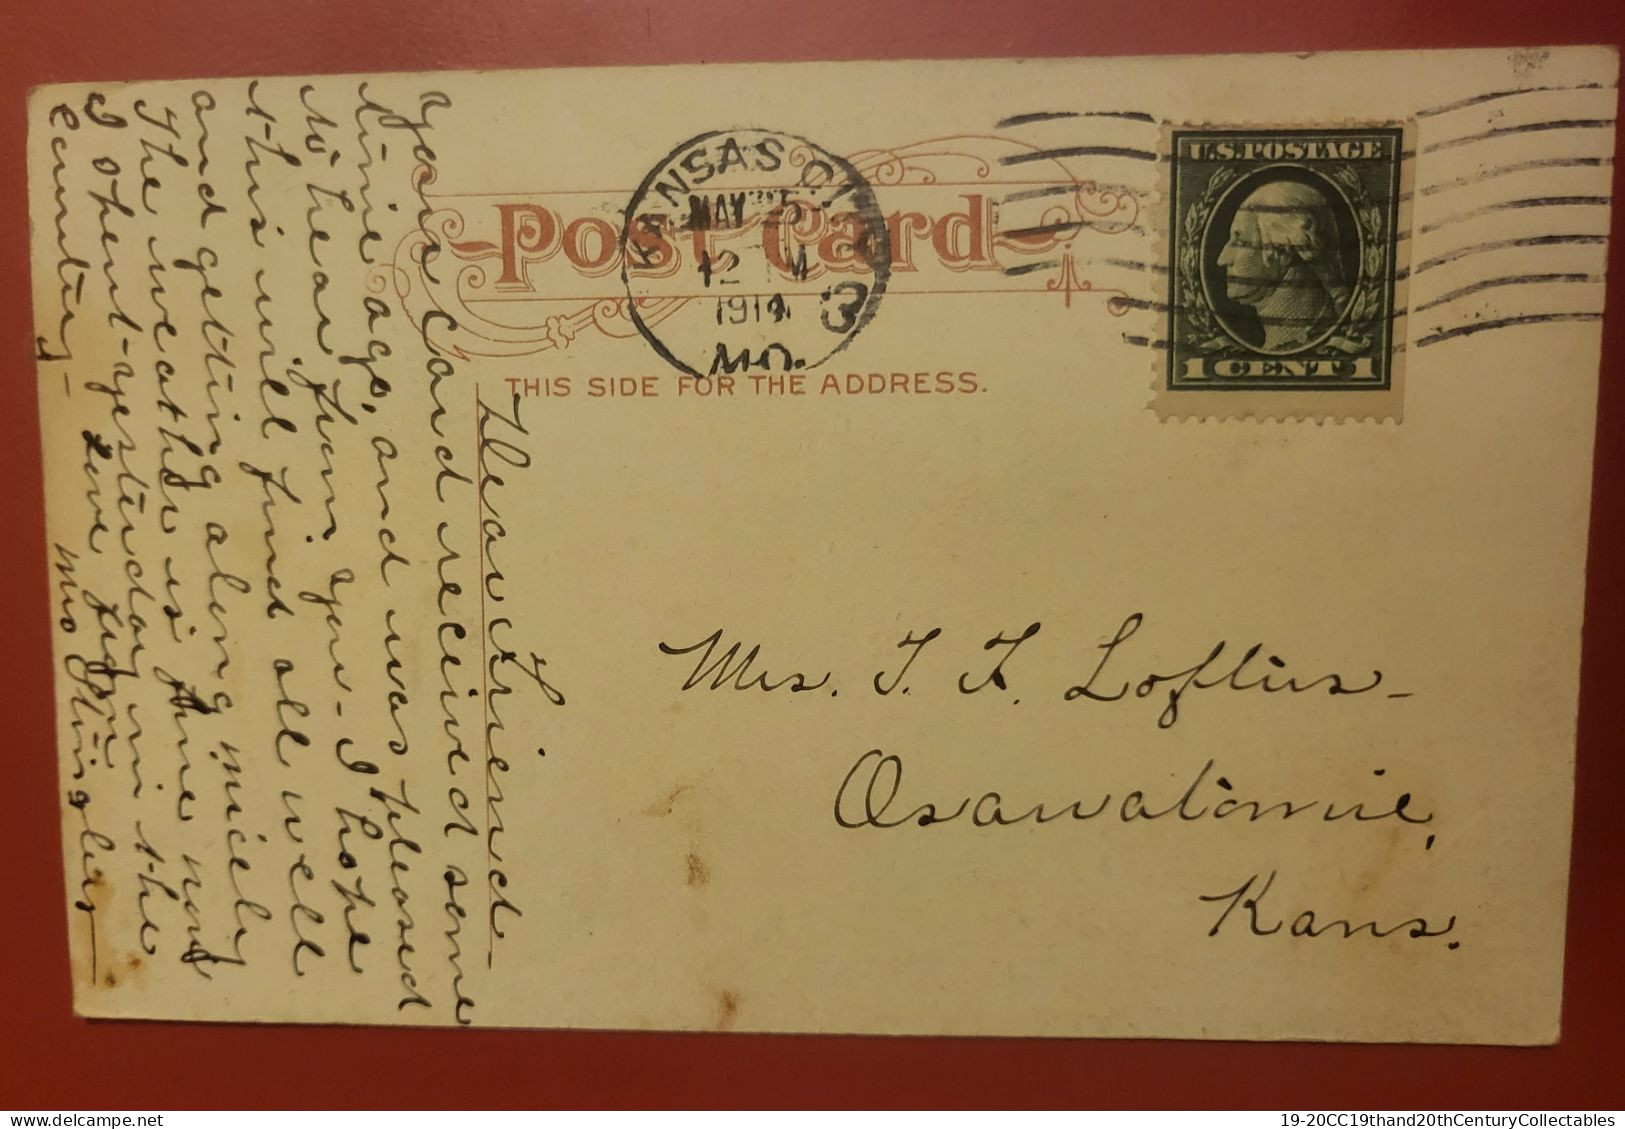 Post Card
THIS SIDE FOR THE ADDRESS.
KANSAS CITY
MAY 25
12 M
1914
MO.
3
U.S. POSTAGE
1 CENT 1
Mrs. T. F. Loftus-
Osawatomie,
Kans.
Dear Friend-
your Card received some
time ago, and was pleased
to hear from you - I hope
this will find all well
and getting along nicely
The weather is fine now
I spent yesterday in the
Country - Love from
Mrs
19-20CC19thand20thCenturyCollectables